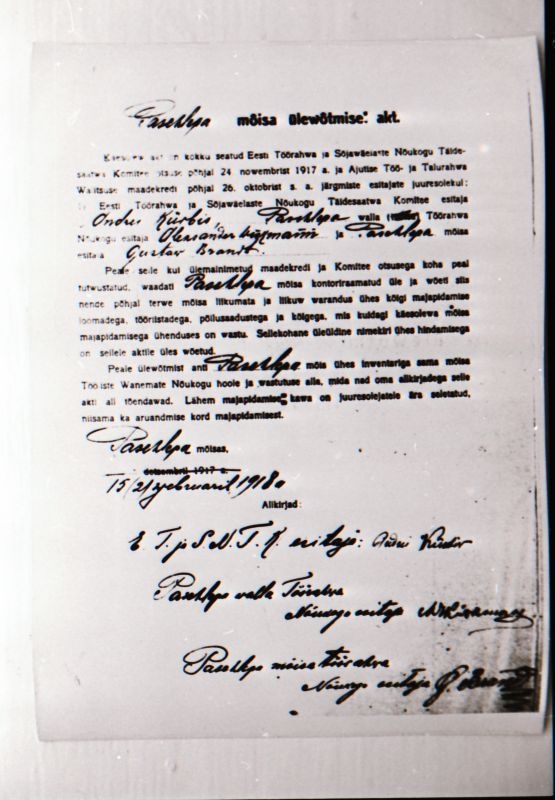 Pasehlepa mõisa ülewõtmise akt.
Käesolew akt on kokku seatud Eesti Töörahwa ja Sõjawäelaste Nõukogu Täide-
saatwa Komitee otsuse põhjal 24 nowembrist 1917 a ja Ajutise Töö- ja Talurahwa
Walitsuse maadekredi põhjal 26. oktobrist s. a. järgmiste esitajate juuresolekul:
Eesti Töörahwa ja Sõjawäelaste Nõukogu Täidesaatwa Komitee esitaja
Andrei Kürbis, Pasehlepa walla Töörahwa
Nõukogu esitaja Aleksander ja Pasehlepa mõisa
esitaja Gustav Brandt.
Peale selle kui ülemainimetud maadekredi ja Komitee otsusega koha peal
tutwustatud, waadati Pasehlepa mõisa kontoriraamatud üle ja wõeti siis
nende põhjal terwe mõisa liikumata ja liikuw warandus ühes kõigi majapidamise
loomadega, tööriistadega, põllusaadustega ja kõigega, mis kuidagi käesolewa mõisa
majapidamisega ühenduses on wastu. Sellekohane üleüldine nimekiri ühes hindamisega
on sellele aktile üles wõetud.
Peale ülewõtmist anti Pasehlepa mõis ühes inwentariga sama mõisa
Tööliste Wanemate Nõukogu hoole ja wastutuse alla, mida nad oma alikirjadega selle
akti all tõendawad. Lähem majapidamise kawa on juuresolejatele ära seletatud,
niisama ka aruandmise kord majapidamisest.
Pasehlepa mõisas,
detsembril 1917 a.
15 (2) webruaril 1918 a
Alikirjad:
E. T. ja S. N. T. K. esitaja: Andrei Kürbis
Pasehlepa walla Töörahwa
Nõukogu esitaja
Pasehlepa mõisa töörahwa
Nõukogu esitaja G. Brandt